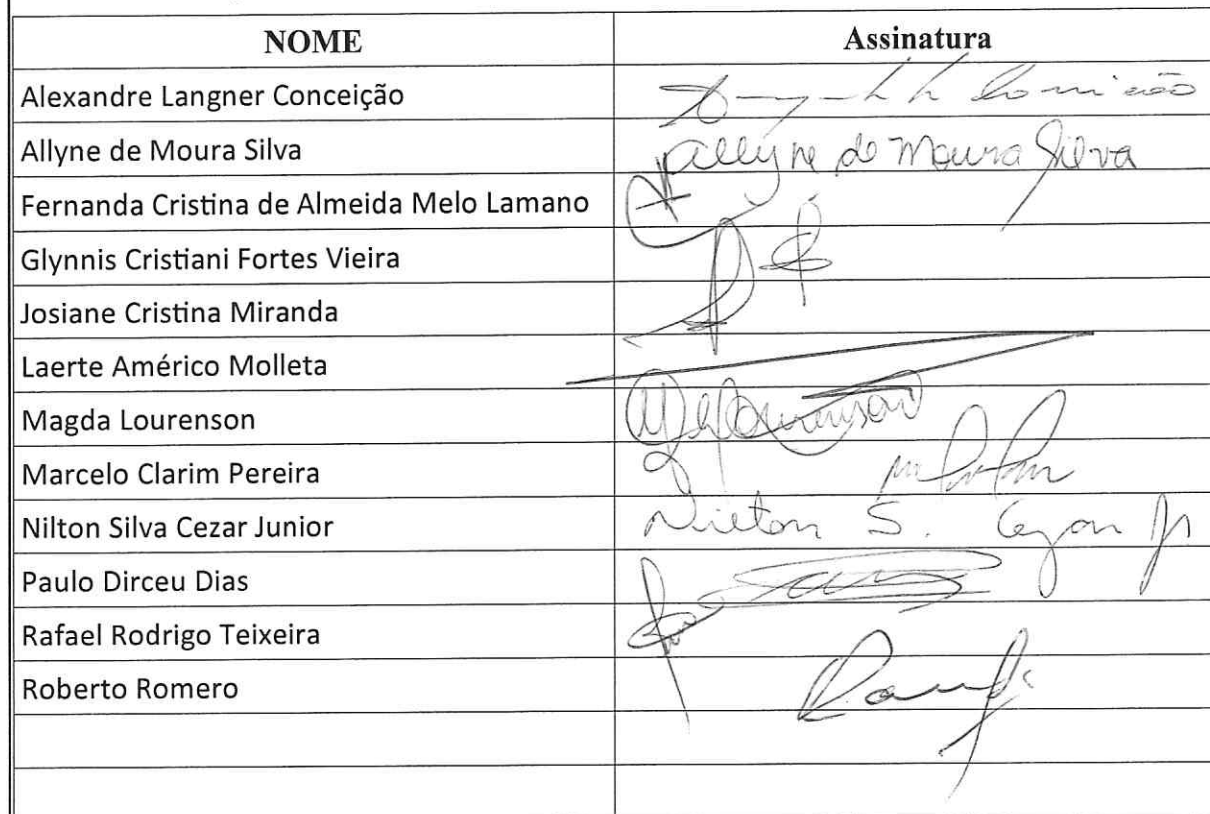 NOME Assinatura
Alexandre Langner Conceição
Allyne de Moura Silva Allyne de Moura Silva
Fernanda Cristina de Almeida Melo Lamano
Glynnis Cristiani Fortes Vieira
Josiane Cristina Miranda
Laerte Américo Molleta
Magda Lourenson Lourenson
Marcelo Clarim Pereira
Nilton Silva Cezar Junior Nilton S. Cezar Jr
Paulo Dirceu Dias
Rafael Rodrigo Teixeira
Roberto Romero